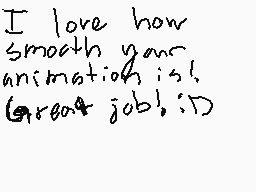 I love how
smooth your
animation is!
Great job! :D